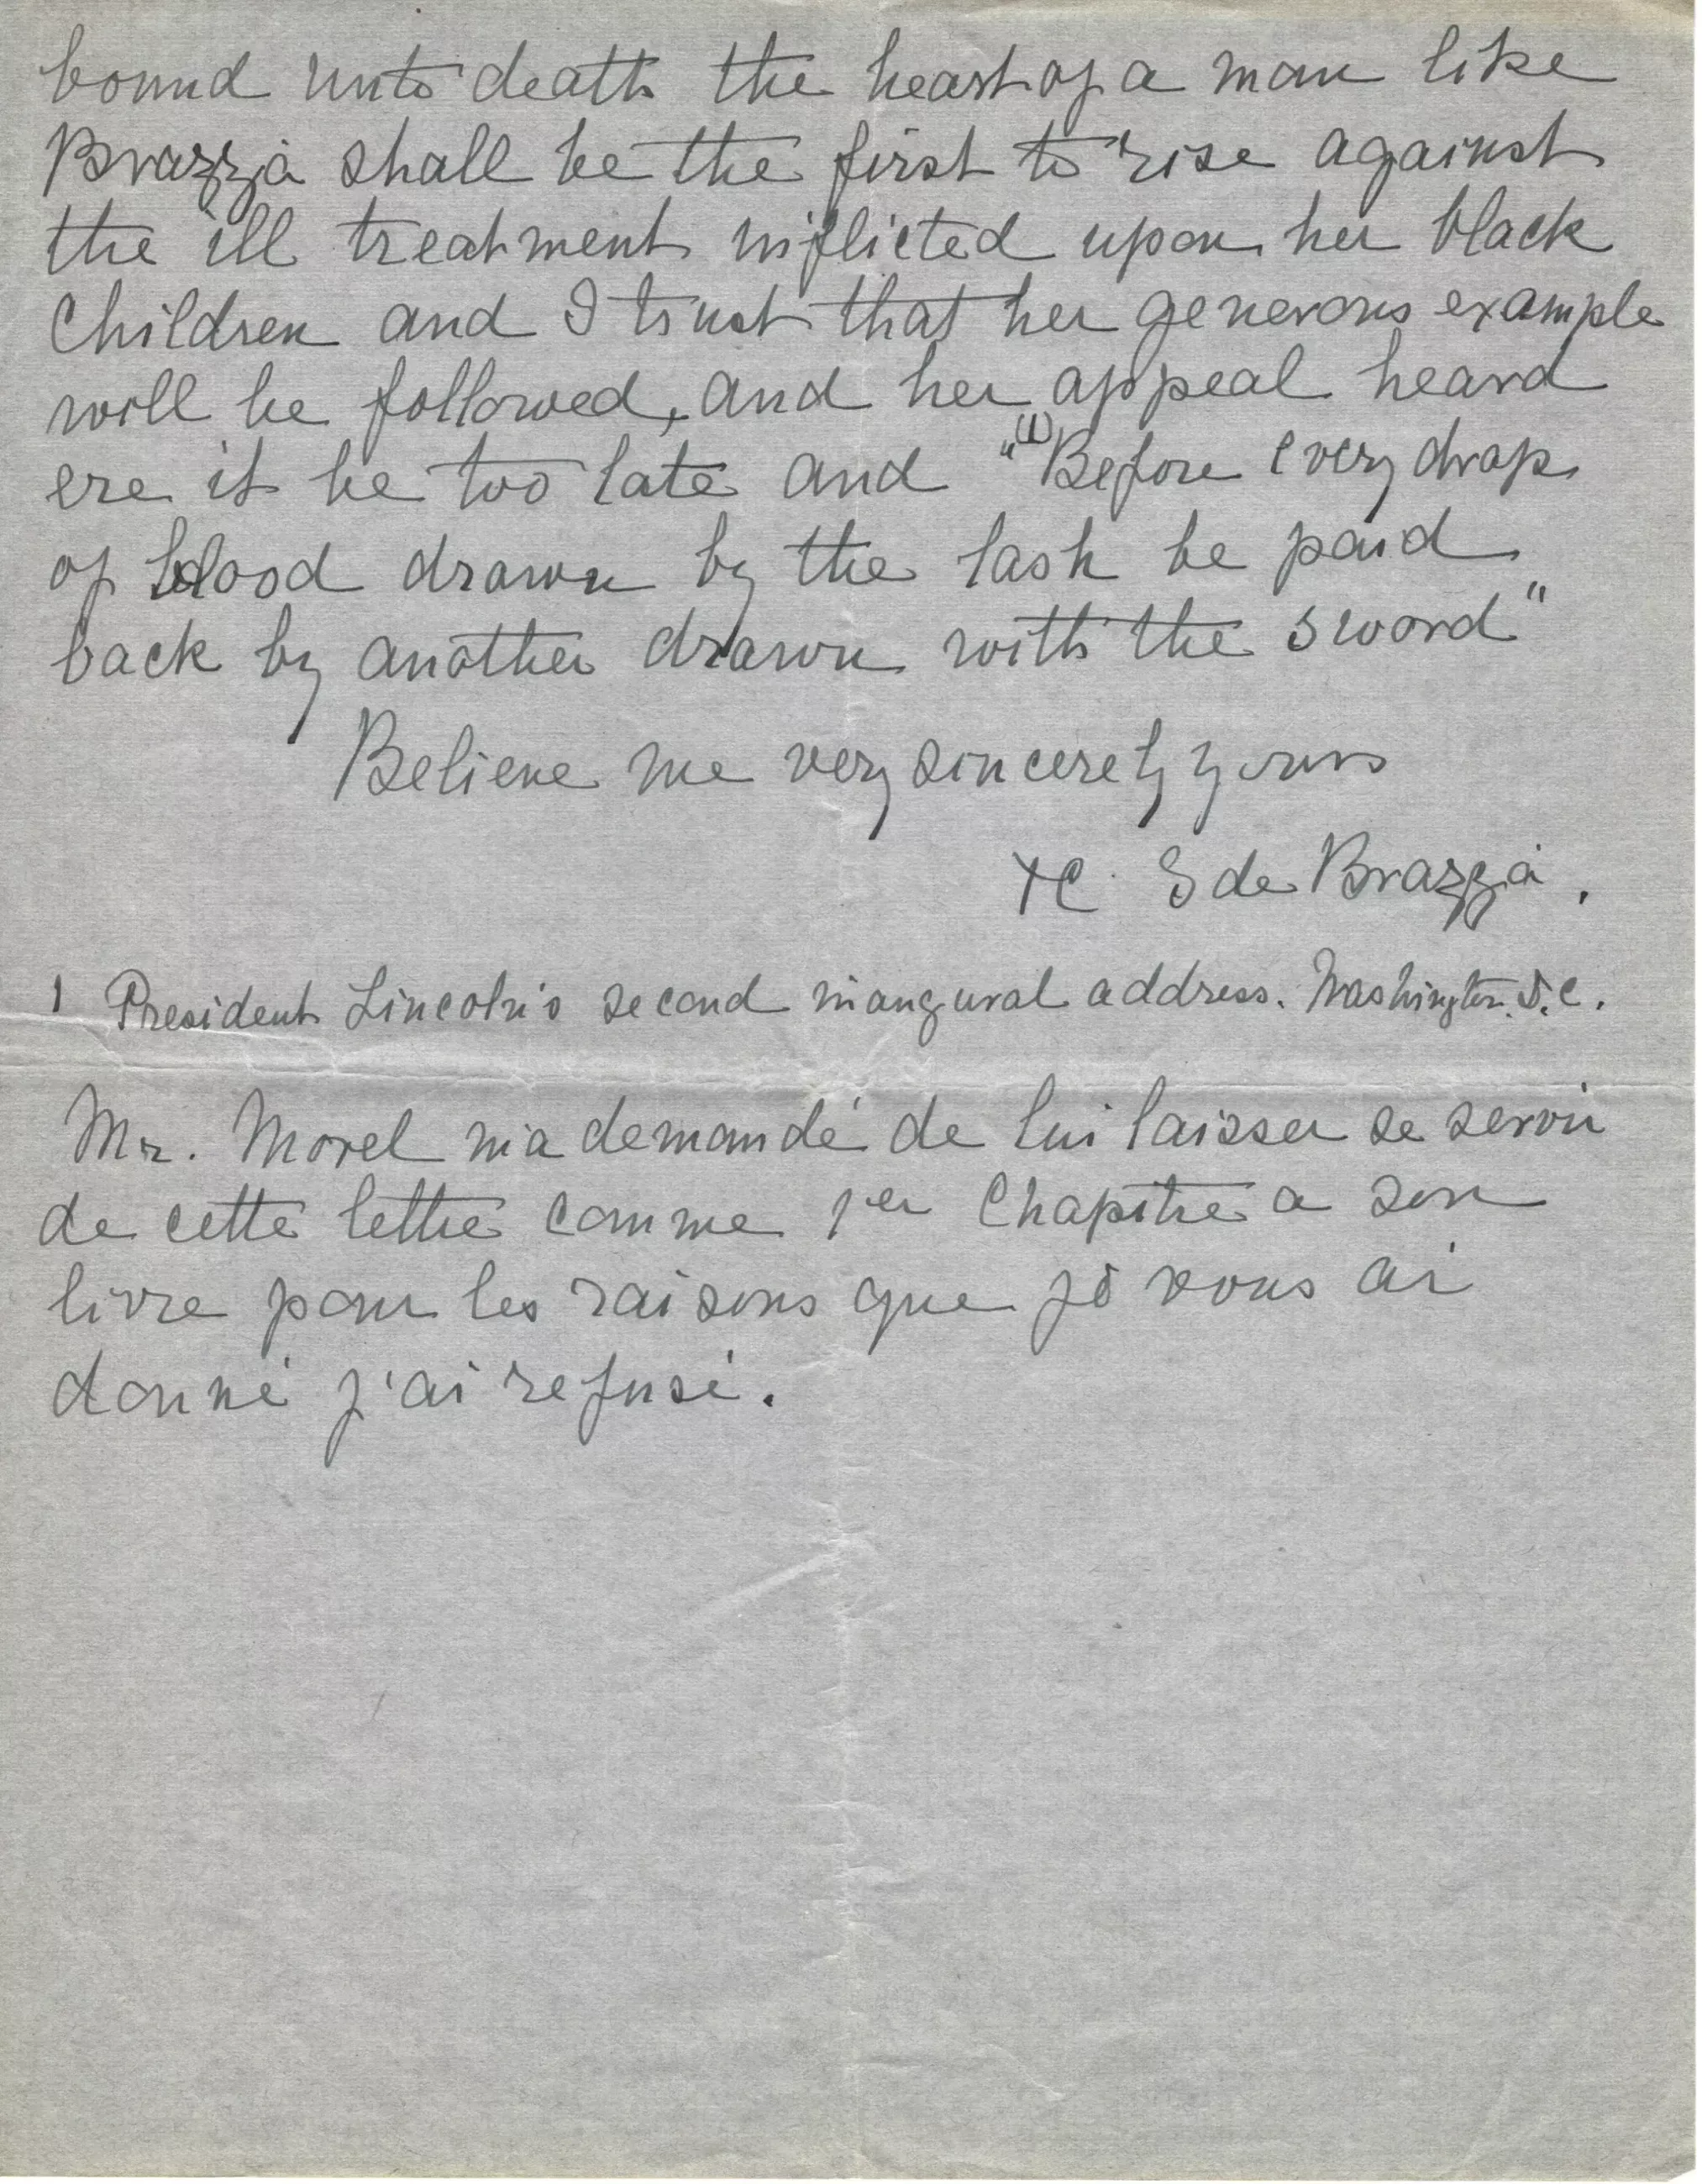 bound unto death the heart of a man like
Brazzà shall be the first to rise against
the ill treatment inflicted upon her black
Children and I trust that her generous example
will be followed, and her appeal heard
ere it be too late and "(1)Before every drop
of blood drawn by the lash be paid
back by another drawn with the sword"
Believe me very sincerely yours
C. S de Brazzà.
1 President Lincoln's second inaugural address. Washington. D.C.
Mr. Morel m'a demandé de lui laisser se servir
de cette lettre comme 1er Chapitre a son
livre pour les raisons que je vous ai
donné j'ai refusé.